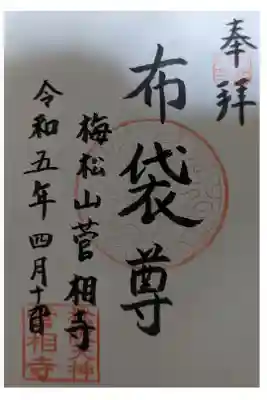 奉拝
布袋尊
梅松山菅相寺
令和五年四月十日
菅相寺